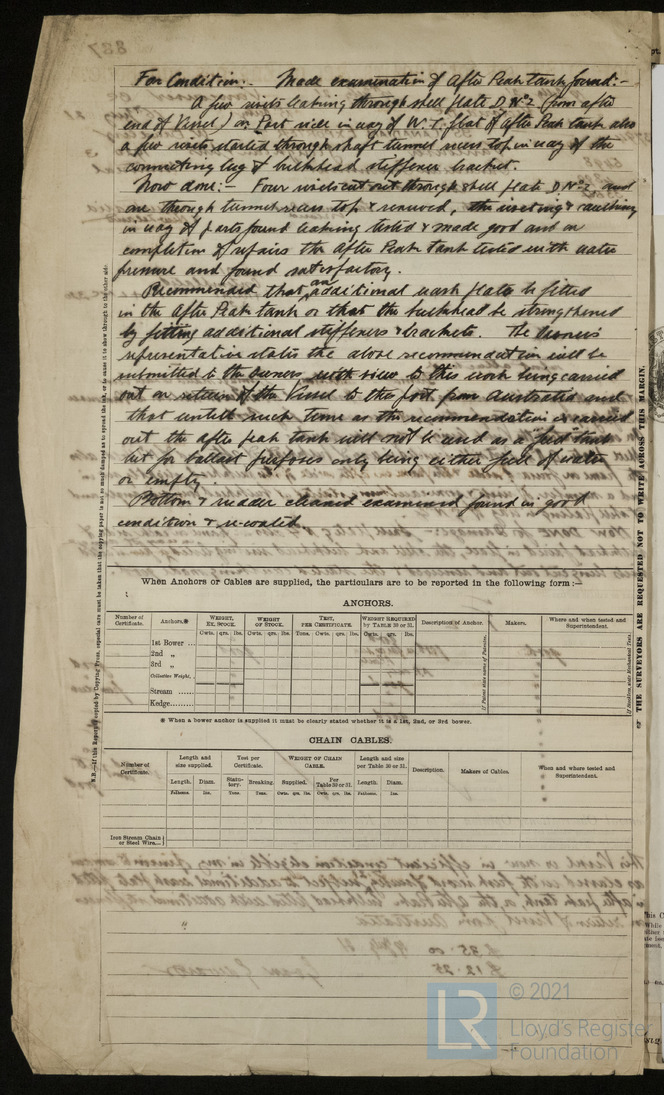 For Condition:- Made examination of After Peak tank found:-
A few rivets leaking through shell plate D No 2 (from after
end of Vessel) on Port side in way of W.T. flat of after Peak tank also
a few rivets started through shaft tunnel recess top in way of the
connecting lug of bulkhead stiffener bracket.
Now done:- Four rivets cut out through shell plate D No 2, and
one through tunnel recess top & renewed, the riveting & caulking
in way of parts found leaking tested & made good and on
completion of repairs the After Peak Tank tested with water
pressure and found satisfactory.
Recommended that an additional wash plate be fitted
in the After Peak tank or that the bulkhead be strengthened
by fitting additional stiffeners & brackets. The Owners
representative states the above recommendation will be
submitted to the Owners with view to this work being carried
out on return of the Vessel to this port from Australia and
that untill such time as the recommendation is carried
out the after peak tank will not be used as a feed tank
but for ballast purposes only being either full of water
or empty.
Bottom & rudder cleaned examined found in good
condition & re-coated.
When Anchors or Cables are supplied, the particulars are to be reported in the following form :—
ANCHORS.
Number of Certificate. Anchors.* WEIGHT, EX. STOCK. WEIGHT OF STOCK. TEST, PER CERTIFICATE. WEIGHT REQUIRED by TABLE 30 or 31. Description of Anchor. Makers. Where and when tested and Superintendent.
Cwts. qrs. lbs. Cwts. qrs. lbs. Tons. Cwts. qrs. lbs. Cwts. qrs. lbs.
1st Bower ...
2nd „
3rd „
Collective Weight,
Stream ......
Kedge.........
* When a bower anchor is supplied it must be clearly stated whether it is a 1st, 2nd, or 3rd bower.
CHAIN CABLES.
Number of Certificate. Length and size supplied. Test per Certificate. WEIGHT OF CHAIN CABLE. Length and size per Table 30 or 31. Description. Makers of Cables. When and where tested and Superintendent.
Length. Diam. Statutory. Breaking. Supplied. Per Table 30 or 31. Length. Diam.
Fathoms. Ins. Tons. Tons. Cwts. qrs. lbs. Cwts. qrs. lbs. Fathoms. Ins.
Iron Stream Chain
or Steel Wire,...
THE SURVEYORS ARE REQUESTED NOT TO WRITE ACROSS THIS MARGIN.
LR
© 2021
Lloyd's Register
Foundation